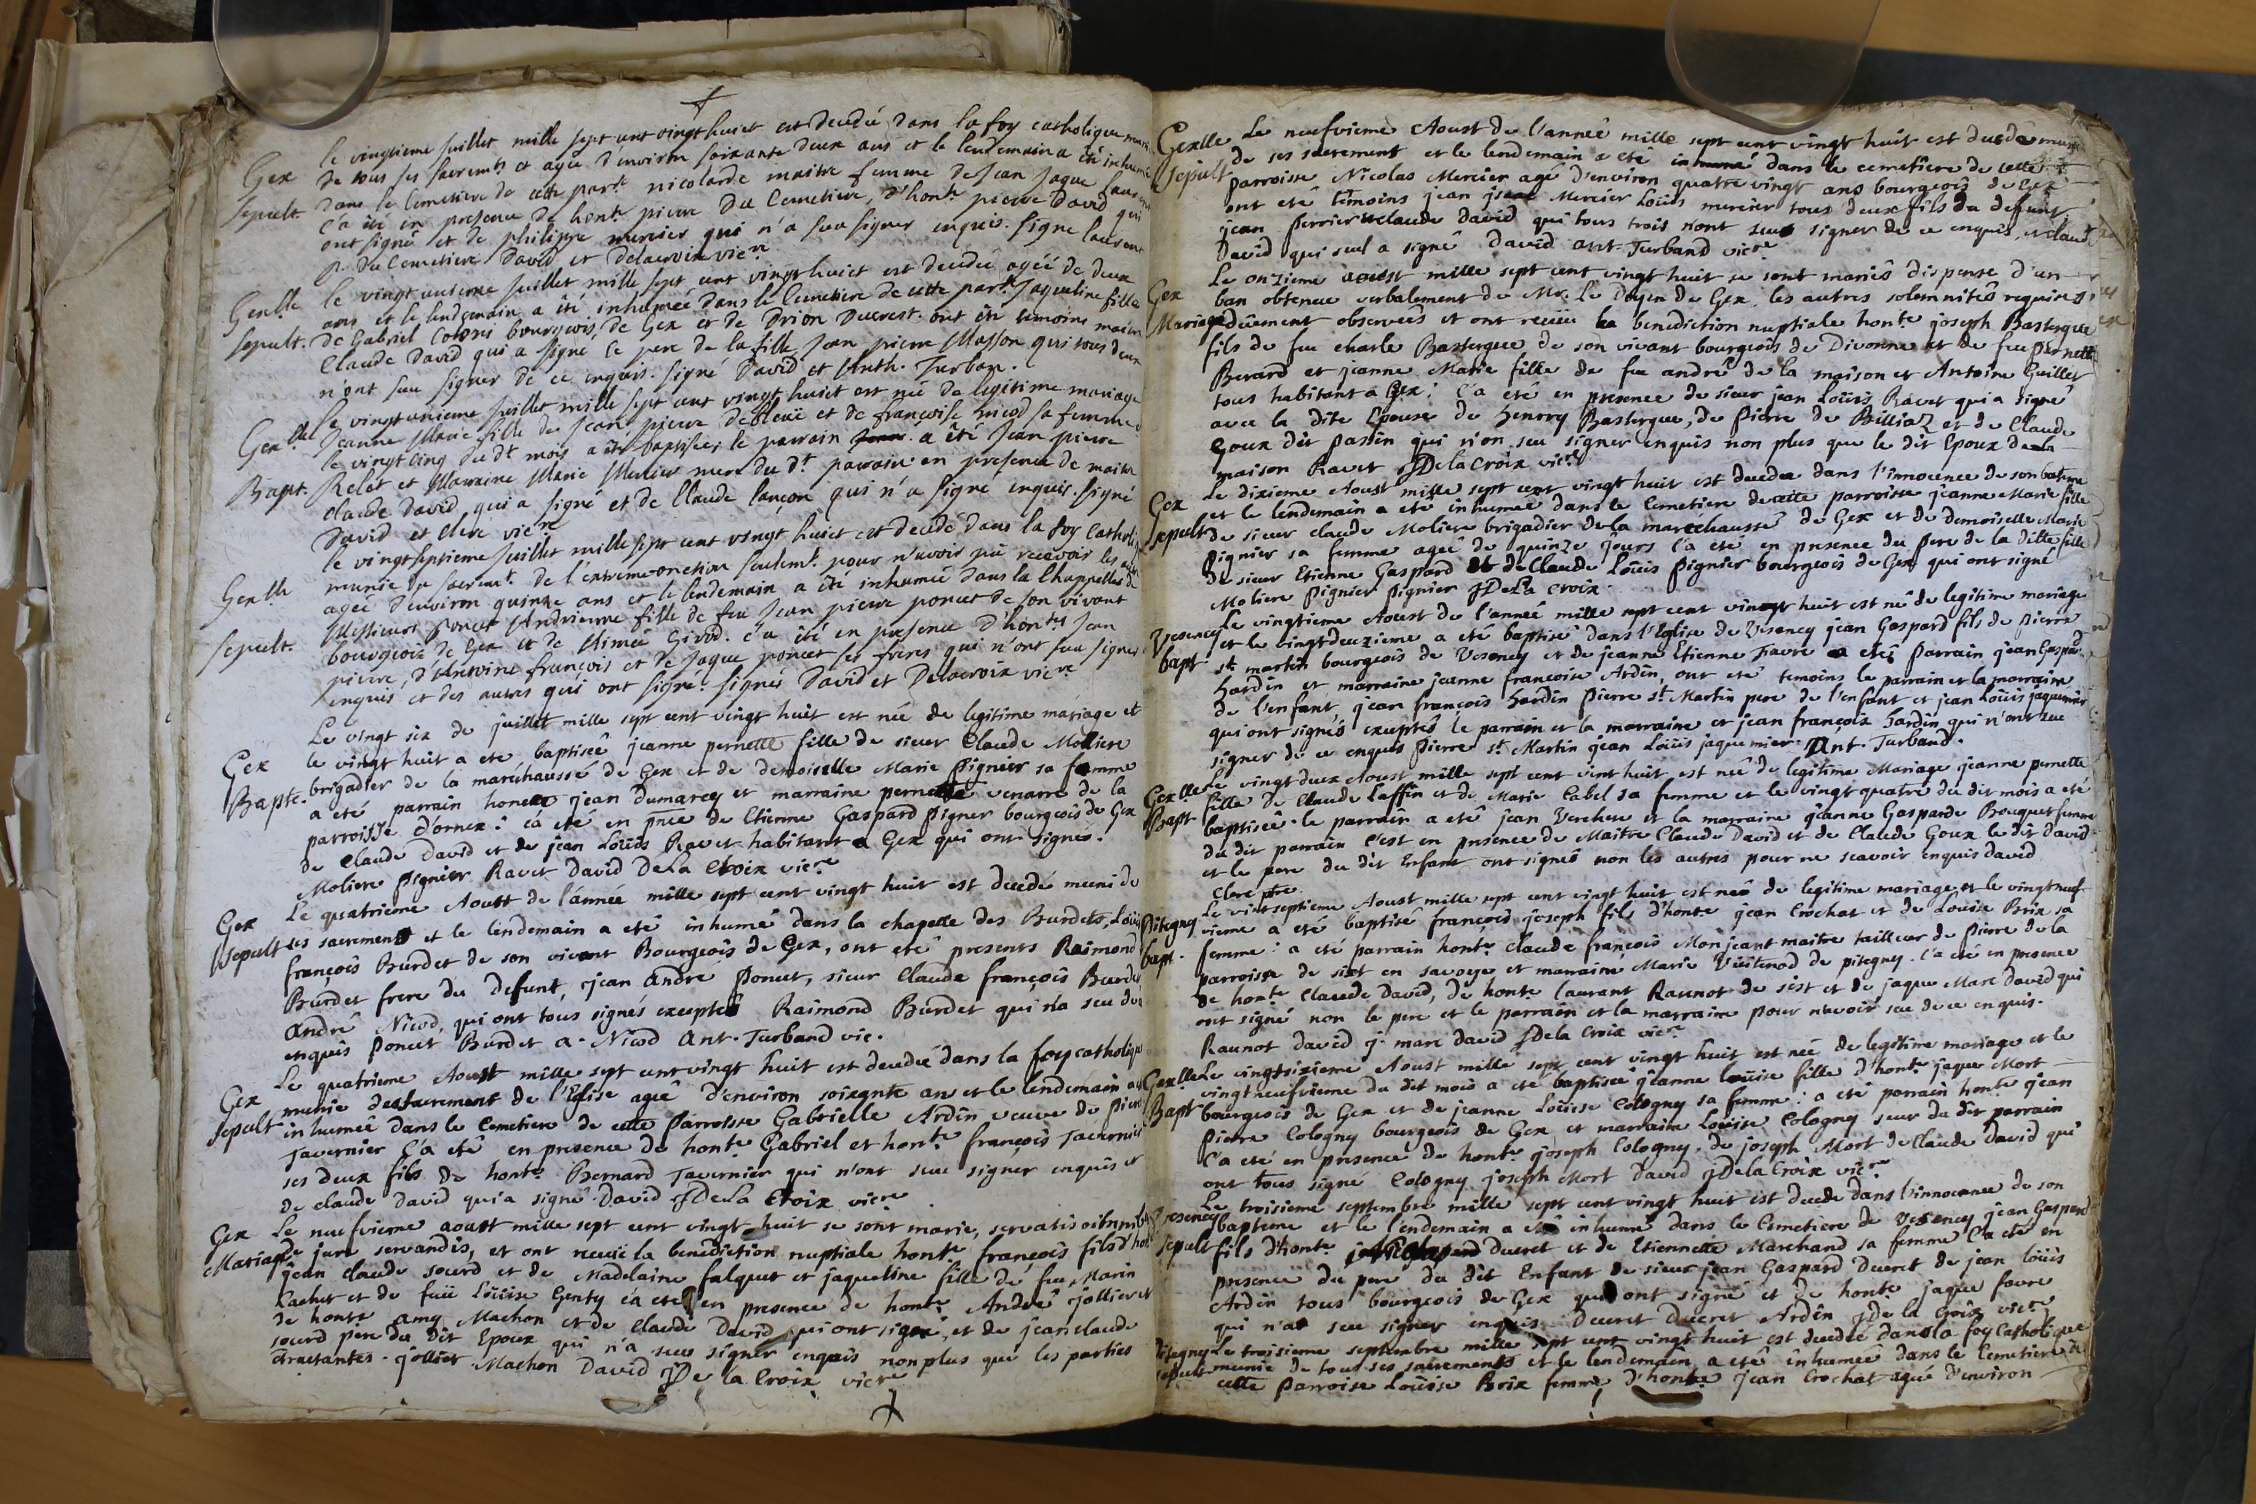 le vingtieme juillet mille sept cent vingt huict est decedé dans la foy catholique munie
Gex de tous ses sacremts et agée d'environ soixante deux ans et le lendemain a été inhumée
sepult. dans le cemetiere de cette parr.e nicolarde maitre femme de jean jaque
ç'a été en presence de hont.e pierre du Cemetiere, d'hont.e pierre David qui
ont signé et de philippe mercier qui n'a sçu signer enquis. signé
p. du Cemetiere David et Delacroix vic.re
Gex.lle le vingt unieme juillet mille sept cent vingt huict est decedé agée de deux
ans et le lendemain a été inhumée dans le Cemetiere de cette parr.e Jaqueline fille
sepult. de Gabriel bourgeois de Gex et de Ducrest. ont été temoins maitre
Claude David qui a signé le pere de la fille Jean pierre Masson qui tous deux
n'ont sçu signer de ce enquis. signé David et Anth. Turban.
le vingt unieme juillet mille sept cent vingt huict est née de legitime mariage
Gex.lle Jeanne Marie fille de Jean pierre et de françoise nicod sa femme
le vingt cinq du d.t mois a été baptisée; le parrain a été Jean pierre
Bapt. Relet et Marraine Marie Mercier mere du d.t parrain en presence de maitre
claude David qui a signé et de Claude lançon qui n'a signé enquis. signé
David et Clerc vic.re
le vingtseptieme juillet mille sept cent vingt huict est decedé dans la foy catholi
Gex.lle munie du sacrem.t de l'extreme-onction seulem.t pour n'avoir pû recevoir les
agée d'environ quinze ans et le lendemain a été inhumée dans la Chappelle de
sepult. Messieurs poncet Andrienne fille de feu Jean pierre poncet de son vivant
bourgeois de Gex et de Aimée Girod. ç'a été en presence d'hont.es Jean
pierre, d'Antoine françois et de Jaque poncet ses freres qui n'ont sçu signer
enquis et des autres qui ont signé. signés David et Delacroix vic.re
Le vingt six de juillet mille sept cent vingt huit est née de legitime mariage et
Gex le vingt huit a eté baptiseé jeanne pernette fille de sieur Claude Moliere
Bapte. brigadier de la maréchaussé de Gex et de demoiselle Marie pignier sa femme
a eté parrain jean dumarcey et marraine pernette venarre de la
parroisse d'ornex: ça eté en pnce de Etienne Gaspard pignier bourgeois de Gex
de Claude David et de jean Loüis Ravet habitant a Gex qui ont signés.
Moliere pignier Ravet David De La Croix vic.re
Gex Le quatrieme Aoust de l'année mille sept cent vingt huit est decedé muni de
sepult ses sacrements et le lendemain a eté inhumé dans la chapelle des Burdets, Loüis
françois Burdet de son vivant Bourgeois de Gex, ont eté presents Raimond
Burdet frere du defunt, jean andre Poncet, sieur Claude françois Burdet
andré Nicod, qui ont tous signés exceptes Raimond Burdet qui n'a sceu de
enquis Poncet Burdet a. Nicod Ant. Turband vic.
Gex Le quatrieme Aoust mille sept cent vingt huit est decedeé dans la foy catholique
sepult munie des sacrement de l'Eglise agée d'environ soixante an et le lendemain a
inhumeé dans le Cemetiere de cette Parroisse Gabrielle Ardin veuve de Pierre
Tavernier ç'a eté en presence de hont.e Gabriel et hont.e françois Tavernier
ses deux fils de hont.e Bernard Tavernier qui n'ont sceu signer enquis et
de claude david qui a signé. David De La Croix vic.re
Gex Le neufvieme aoust mille sept cent vingt huit se sont marie, servatis
Mariage de jure servandis, et ont receüe la benediction nuptiale hont.e françois fils d'hon
jean claude sourd et de Madelaine falquet et jaqueline fille de feu Marin
Lachet et de feüe Loüise Genty ça eté en presence de hont.e André jollier et
de hont.e amy Machon et de Claude David qui ont signé, et de jean claude
sourd pere du dit Epoux qui n'a sceu signer enquis non plus que les parties
contractantes. jollier Machon David De la Croix vic.re
Gex.lle Le neufvieme Aoust de l'anneé mille sept cent vingt huit est decedé muni
sepult de ses sacrement et le lendemain a eté inhumé dans le cemetiere de cette
parroisse Nicolas Mercier agé d'environ quatre vingt ans bourgeois de Gex
ont eté témoins jean Mercier Loüis mercier tous deux fils du defunt
jean Perrier et claude david qui tous trois n'ont sceu signer de ce enquis,
David qui seul a signé David ant. Turband vic.re
Gex Le onzieme aoust mille sept cent vingt huit se sont mariés dispense d'un
Mariage ban obtenue verbalement de Mr. Le Doyen de Gex les autres solemnités requises
deüement observeés et ont receüe la benediction nuptiale hont.e joseph Bastergue
fils de feu charle Bastergue de son vivant bourgeois de Divonne et de feu pernette
Berard et jeanne Marie fille de feu andré de la maison et Antoine Guillet
tous habitant a Gex; ç'a eté en presence de sieur jean Loüis Ravet qui a signé
avec la dite Epouse de Henrry Bastergue, de Pierre de Billiaz et de Claude
Goux dit passin qui n'on sceu signer enquis non plus que le dit Epoux de la
maison Ravet De la Croix vic.re
Gex Le dixieme Aoust mille sept cent vingt huit est decedeé dans l'innocence de son bateme
sepult et le lendemain a eté inhumeé dans le Cemetiere de cette parroisse jeanne Marie fille
de sieur claude Moliere brigadier de la marechaussé de Gex et de demoiselle Marie
Pignier sa femme ageé de quinze jours ç'a eté en presence du pere de la dite fille
de sieur Etienne Gaspard et de Claude Loüis Pignier bourgeois de Gex qui ont signé
Moliere Pignier Pignier De La Croix
Vesency Le vingtieme Aoust de l'anneé mille sept cent vingt huit est né de legitime mariage
bapt et le vingtdeuxieme a eté baptisé dans l'Eglise de Vesency jean Gaspard fils de pierre
st martin bourgeois de Vesency et de jeanne Etienne Favre a eté parrain jean Gaspar
Hardin et marraine jeanne francoise Ardin, ont eté temoins le parrain et la marraine
de l'enfant jean françois Hardin pierre st Martin pere de l'enfant et jean Loüis jaquemier
qui ont signés exceptés le parrain et la marraine et jean françois Hardin qui n'ont sceu
signer de ce enquis pierre st Martin jean Loüis jaquemier. Ant. Turband.
Gex.lle Le vingt deux Aoust mille sept cent vint huit est neé de legitime Mariage jeanne pernette
Bapt fille de Claude Laffin et de Marie Cabel sa femme et le vingt quatre du dit mois a eté
baptiseé. le parrain a eté jean Verchere et la marraine jeanne Gasparde Bouquet femme
du dit parrain c'est en presence de Maitre Claude David et de Claude Goux le dit david
et le pere du dit Enfant ont signés non les autres pour ne scavoir enquis david
Clerc ptre
Pitegny Le vintseptieme Aoust mille sept cent vingt huit est neé de legitime mariage et le vingtneuf
bapt. vieme a été baptisé françois joseph fils d'hont.e jean Crochat et de Louise Brix sa
femme: a eté parrain hont.e claude françois Monjeant maitre tailleur de pierre de la
parroisse de sixt en savoye et marraine Marie Vüitenod de pitegny. ç'a eté en presence
de hont.e claude David, de hont.e laurant Raunot de sixt et de jaque Marc david qui
ont signé non le pere et le parrain et la marraine pour n'avoir sceu de ce enquis.
Raunot david j. marc david De la Croix vic.re
Gex.lle Le vingtsixieme Aoust mille sept cent vingt huit est née de legitime mariage et le
Bapt vingtneufvieme du dit mois a eté baptiseé jeanne loüise fille d'hont.e jaque Mort
bourgeois de Gex et de jeanne Loüise Cologny sa femme: a eté parrain hont.e jean
Pierre Cologny bourgeois de Gex et marraine Loüise Cologny seur du dit parrain
ç'a eté en presence de hont.e joseph Cologny, de joseph Mort de Claude David qui
ont tous signé Cologny joseph Mort David De la Croix vic.re
Vesency Le troisieme septembre mille sept cent vingt huit est decedé dans l'innocence de son
sepult bapteme et le lendemain a eté inhumé dans le Cemetiere de Vesency jean Gaspard
fils d'hont.e Ducret et de Etiennette Marchand sa femme ç'a eté en
presence du pere du dit Enfant de sieur jean Gaspard Ducret de jean loüis
Ardin tous bourgeois de Gex qui ont signé et de hont.e jaque favre
qui n'a sceu signer enquis Ducret Ducret Ardin De la Croix vic.re
Pitegny Le troisieme septembre mille sept cent vingt huit est decedeé dans la foy Catholique
sepult munie de tout ses sacrements et le lendemain a eté inhumeé dans le Cemetiere de
cette Parroisse Loüise Brix femme d'hont.e jean Crochat ageé d'environ